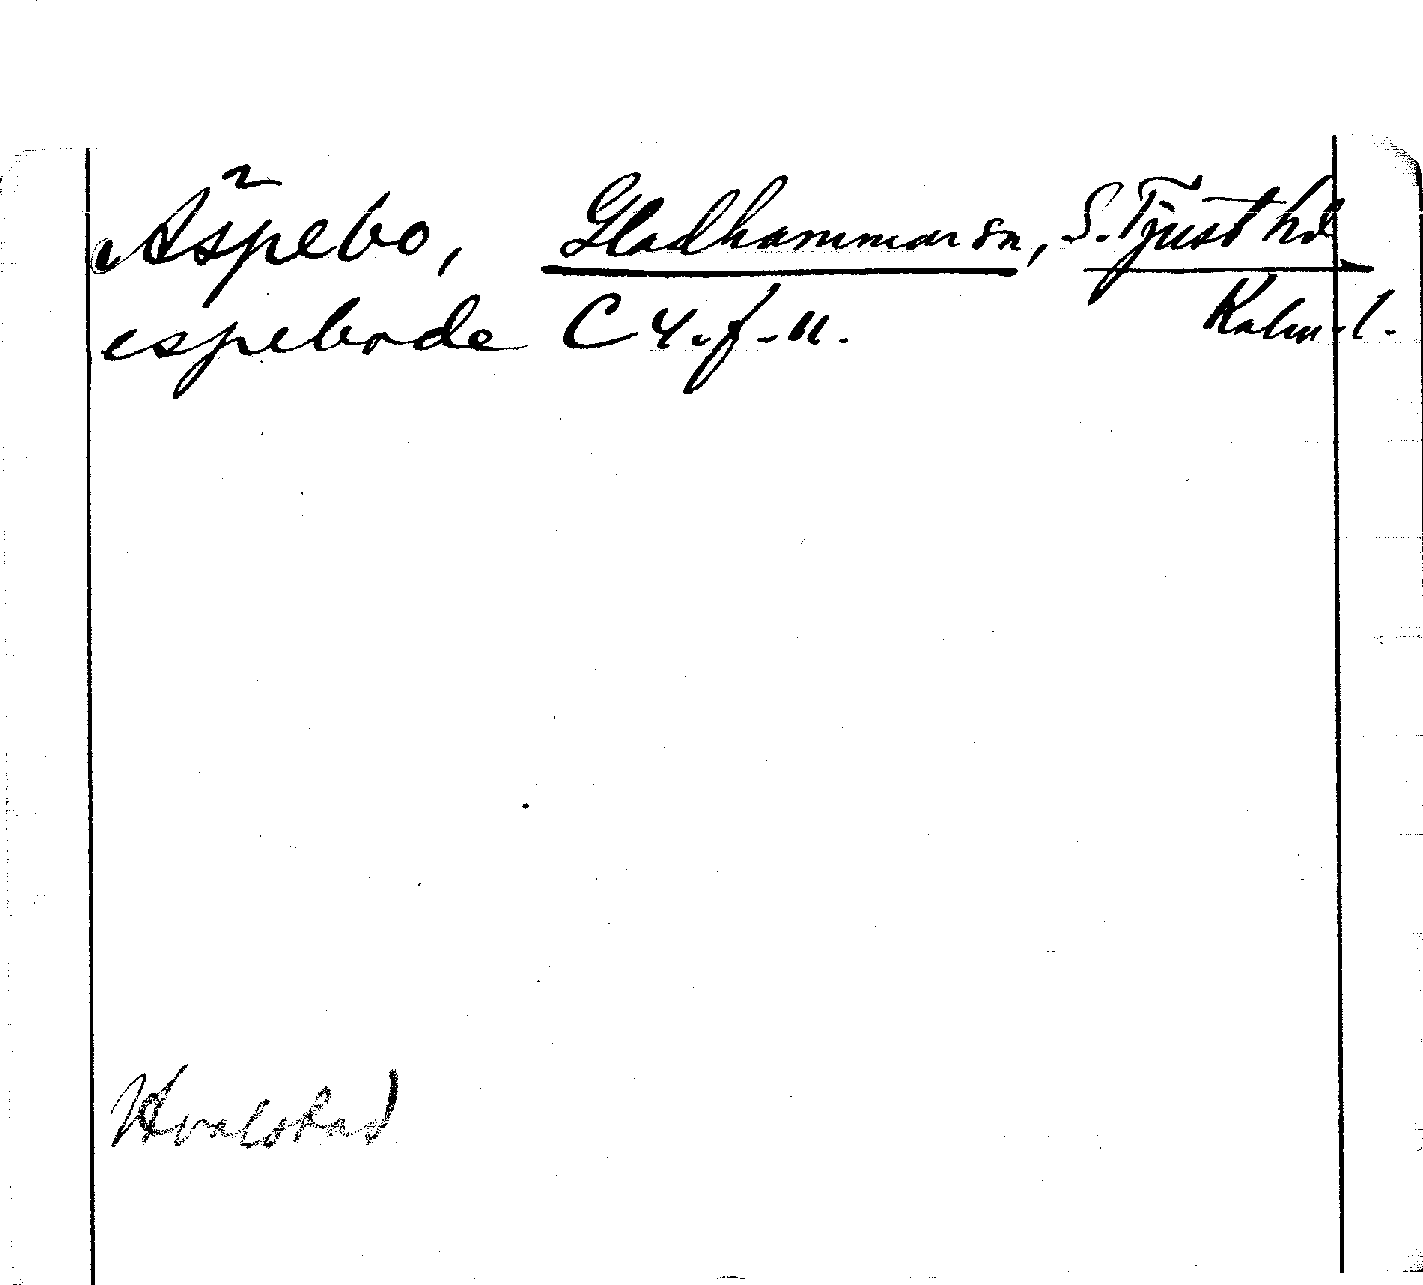 Äspebo, Gladhammar sn, S. Tjust hd
espebode C 4. f. 11. Kalm. l.
Hvalstad